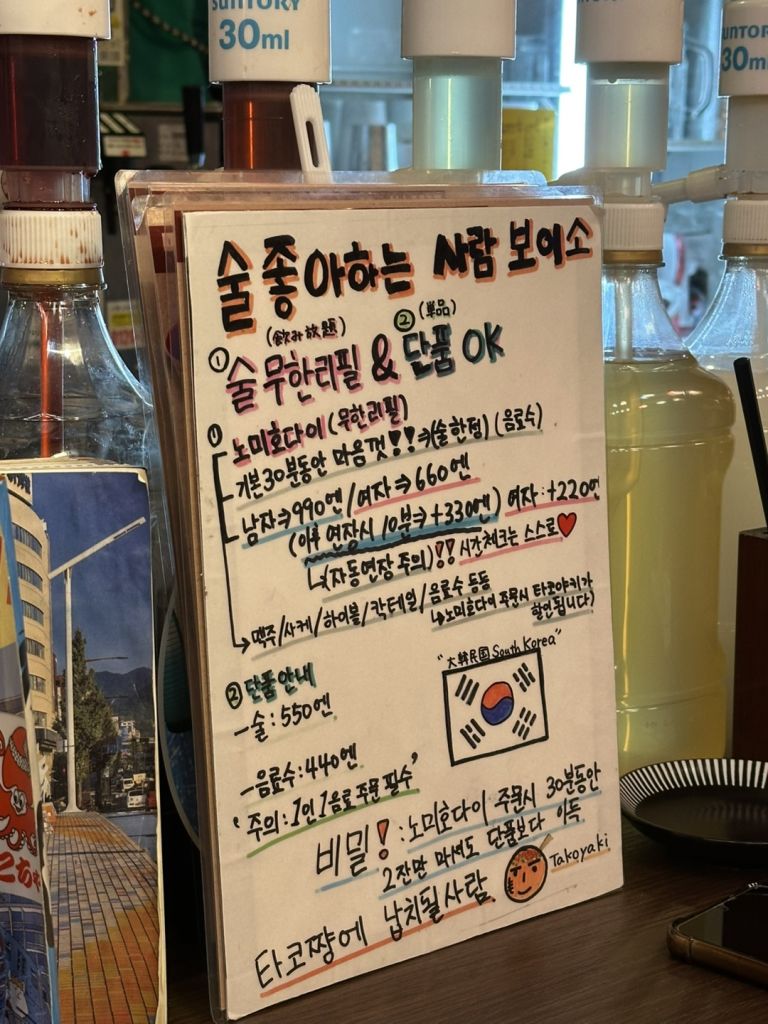 SUNTORY
30ml
SUNTORY
30ml
술좋아하는 사람 보이소
(飲み放題) ② (単品)
① 술 무한리필 & 단품 OK
① 노미호다이 (무한리필)
기본 30분동안 마음껏!! → (술 한정) (음료수)
남자 → 990엔 / 여자 → 660엔
(이후 연장시 10분 → +330엔) 여자 : +220엔
↳ (자동연장 주의)!! 시간체크는 스스로♥
→ 맥주/사케/하이볼/칵테일/음료수 등등
↳ 노미호다이 주문시 타코야키가
할인됩니다)
"大韓民国 South Korea"
② 단품안내
- 술 : 550엔
- 음료수 : 440엔
' 주의 : 1인 1음료 주문 필수 '
비밀! : 노미호다이 주문시 30분동안
2잔만 마셔도 단품보다 이득
Takoyaki
타코짱에 납치될사람